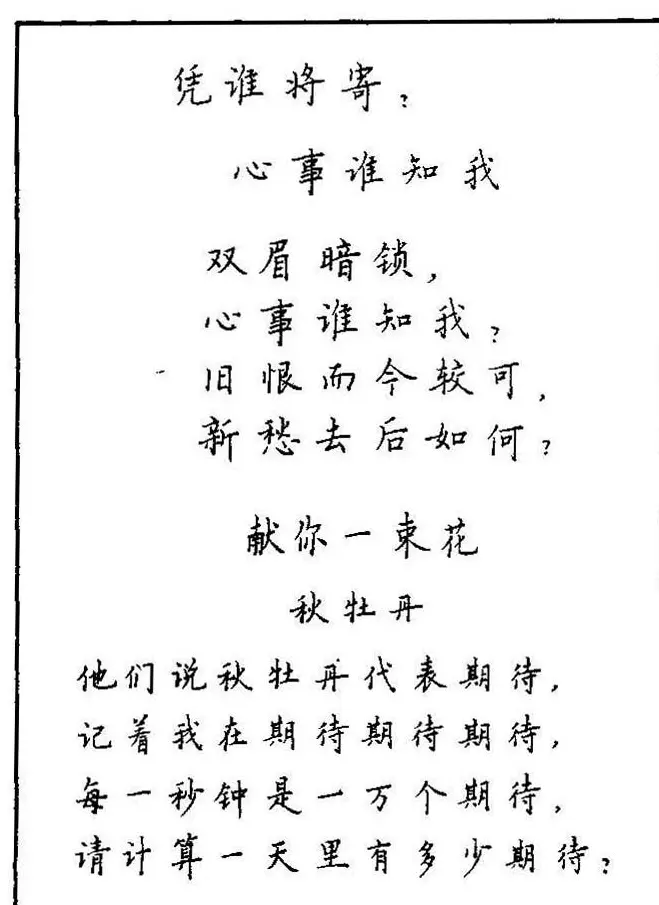 凭谁将寄?
心事谁知我
双眉暗锁,
心事谁知我?
旧恨而今较可,
新愁去后如何?
献你一束花
秋牡丹
他们说秋牡丹代表期待,
记着我在期待期待期待,
每一秒钟是一万个期待,
请计算一天里有多少期待?